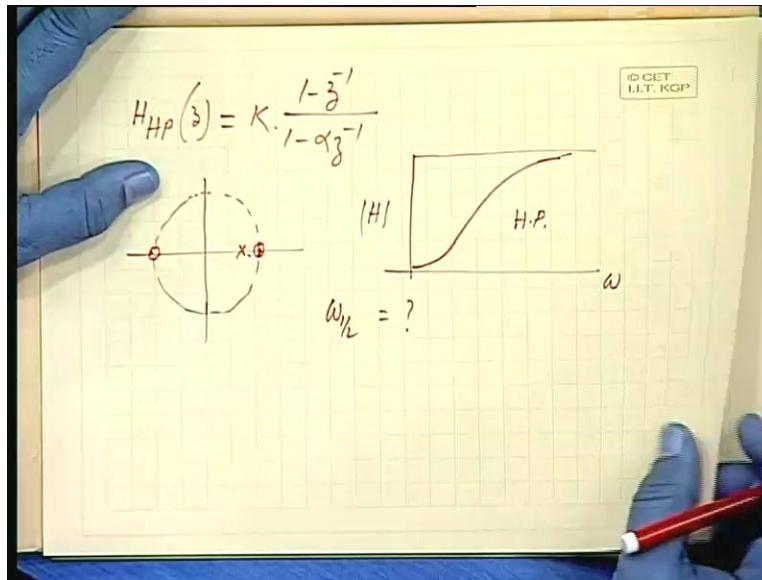 © CET
I.I.T. KGP
H_HP(z) = K. (1 - z^-1) / (1 - αz^-1)
|H|
H.P.
ω
ω_1/2 = ?